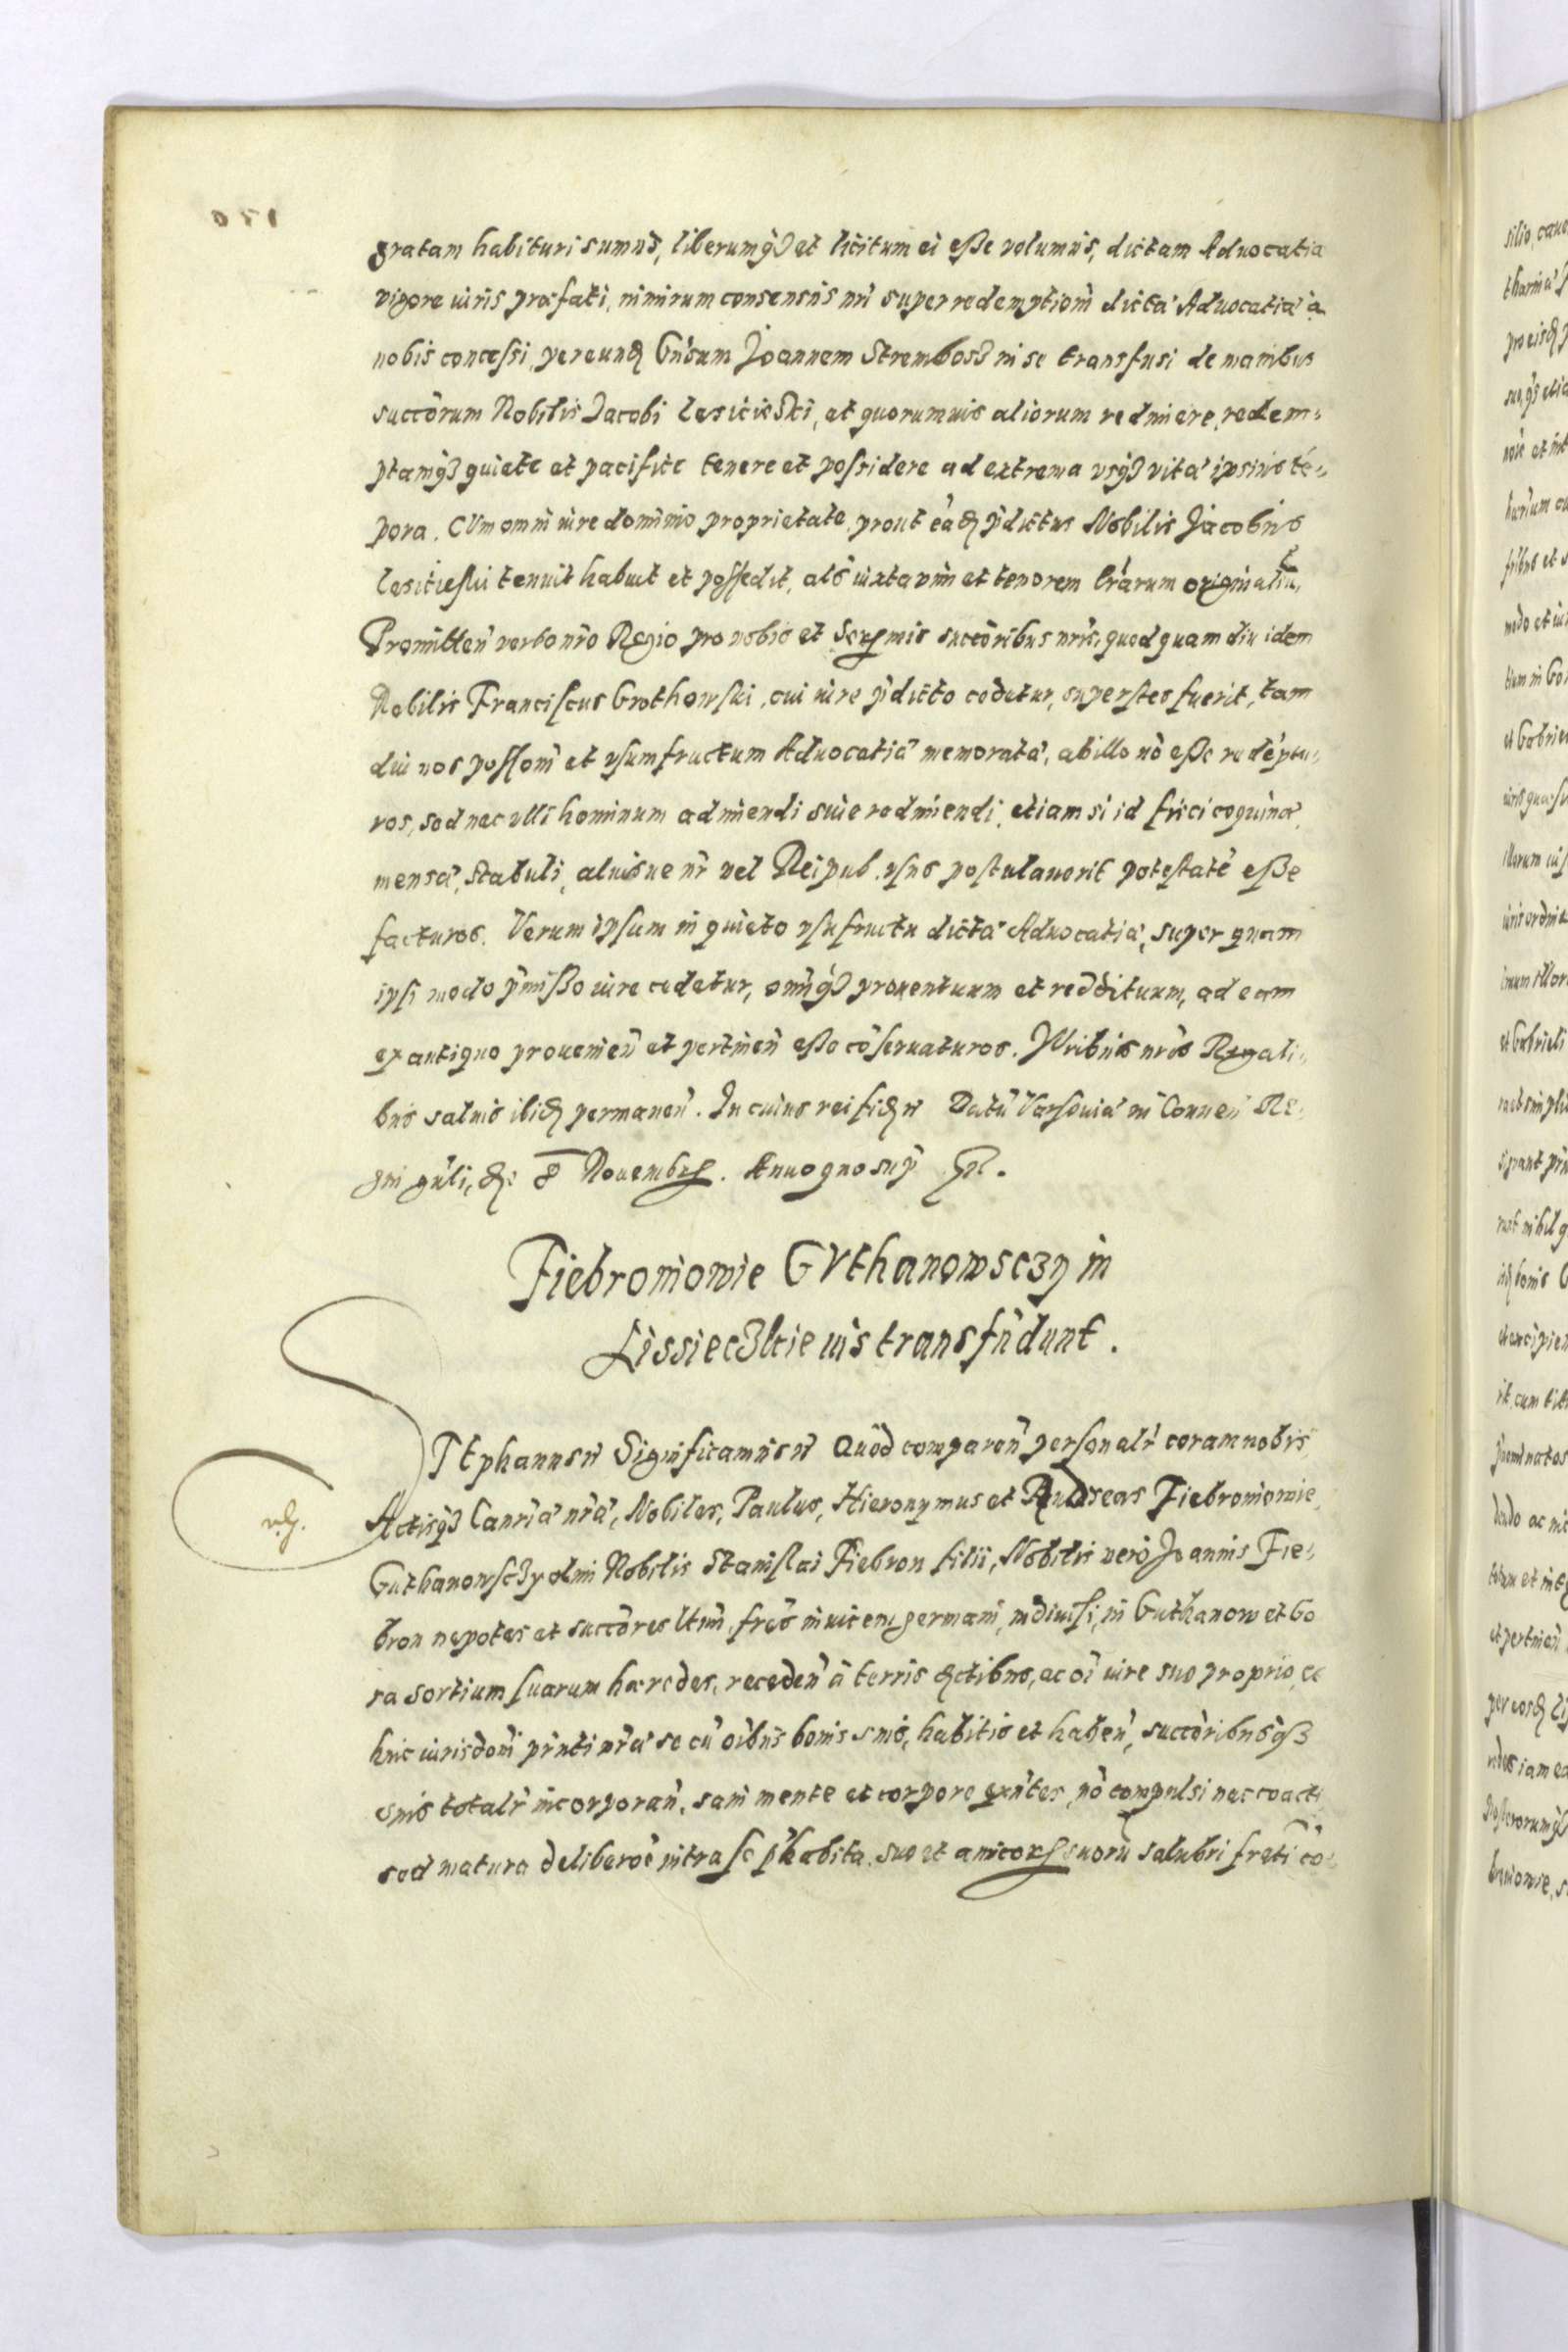 gratam habituri sumus, liberumq3 et licitum ei esse volumus, dictam Aduocatia
vigore iuris praefati, nimirum consensus nri super redemptioñ dicta Aduocatia a
nobis concessi, per eund Gñsum Joannem Strembosz in se transfusi de manibus
succorum Nobilis Jacobi Lesiciski, et quorumuis aliorum redimere, redem-
ptamq3 quiete et pacifice tenere et possidere ad extrema vsq3 vita ipsius té-
pora. CVm omni iure dominio proprietate, prout ea p̃dictus Nobilis Jacobus
Lesicieski tenuit habuit et possedit, als iuxta vim et tenorem lrãrum originaliu,
Promitteñ verbo nrõ Regio pro nobis et Ser mis succoribus nris, quod quam diu idem
Nobilis Franciscus Grothowski, cui iure p̃dicto cedetur, superstes fuerit, tam
diu nos posssoñ et vsumfructum Aduocatia memorata, ab illo nõ esse redéptu-
ros, sed nec vlli hominum adimendi siue redimendi, etiam si id fisci coquina,
mensa, stabuli, aliusue nr̃ vel Reipub. vsus postulauerit potestaté esse
facturos. Verum ipsum in quieto vsufructu dicta Aduocatia, super quam
ipsi modo p̃misso iure cedetur, omniq3 prouentuum et reddituum, ad eam
ex antiquo proueneñ et pertineñ esse cõseruaturos. IVribus nrõs Regali-
bus saluis ibid permaneñ. In cuius rei fid ñ Datũ Varsouia in Conueñ Re-
gni gñli, d: 8 Nouembr. Anno quo sup̃
Fiebroniowie GVthanowsc3y in
Lissiec3lcie ius transfũdunt.
STephanus ñ Significamus ñ Quod compareñ personalr̃ coram nobis,
Actisq3 Canria nrã, Nobiles, Paulus, Hieronymus et Andreas Fiebroniowie
Guthanowsc3y olim Nobilis Stanislai Fiebron filii, Nobilis vero Joannis Fie-
bron nepotes et succores ltim, frẽs inuicem germani, indiuisi, in Guthanow et Go
ra sortium suarum haeredes, recedeñ a terris ctibus, ac oi iure suo proprio, et
huic iurisdoni pr̃nti nrã se cũ oibus bonis suis, habitis et habeñ, succoribusq3
suis totalr̃ incorporañ, sani mente et corpore exñtes, nõ compulsi nec coacti
sed matura deliberoe intra se p̃habita, suo et amicor suorũ salubri freti cõ-